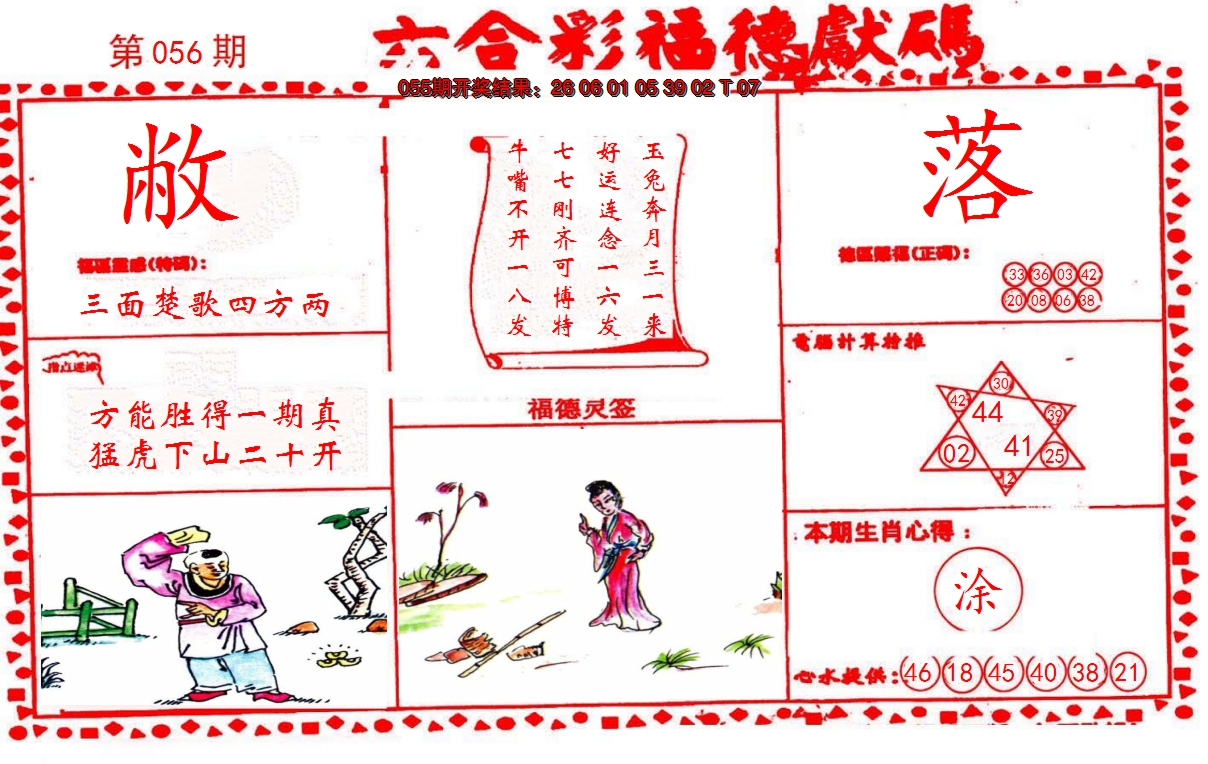 第 056 期
六合彩福德獻碼
055期开奖结果：26 06 01 05 39 02 T 07
敝
福區靈感(特碼)：
三面楚歌四方两
指点迷津
方能胜得一期真
猛虎下山二十开
玉兔奔月三一来
好运连念一六发
七七刚齐可博特
牛嘴不开一八发
福德灵签
落
德區賜福(正碼)：
33 36 03 42
20 08 06 38
電腦計算特推
30
42 44 39
02 41 25
12
本期生肖心得：
涂
心水提供：46 18 45 40 38 21